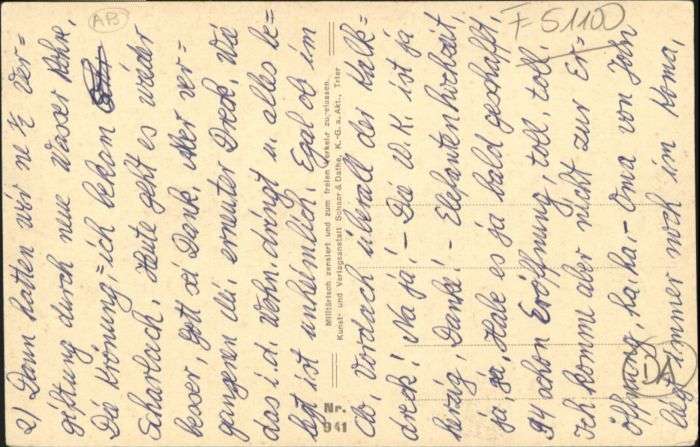 2) Dann hatten wir ne ½ Ver=
giftung durch neue Wasser Rohre.
Die Krönung, =ich bekam
Scharlach. Heute geht es wieder
besser, Gott sei Dank. Aber ver=
gangenen Mi. erneuter Dreck. Wie
das i.d. Wohn. drängt u. alles be=
legt ist unheimlich. Egal ob im
Militärisch zensiert und zum freien Verkehr zugelassen.
Kunst- und Verlagsanstalt Schaar & Dathe, K.-G. a. Akt., Trier
Nr.
941
Clo, Vordach überall der Kalk=
dreck! Na ja! – Die W.K. ist ja
Danke! – Elefantenhochzeit,
ja, ja. Habe es ja bald geschafft,
94 schon Eröffnung, toll, toll.
Ich komme aber nicht zur Er=
öffnung, ha, ha. – Oma von John
liegt immer noch im Koma,
AB
F 51100
DA